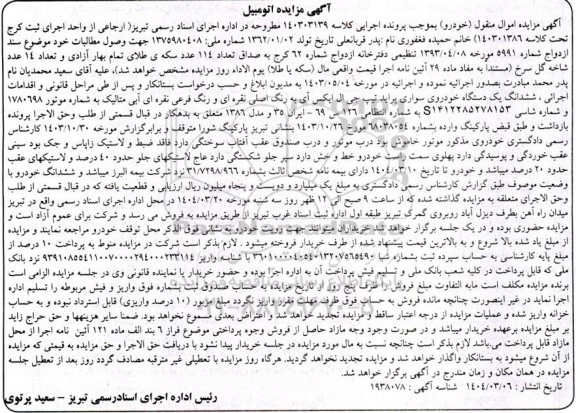 آگهی مزایده اتومبیل
آگهی مزایده اموال منقول (خودرو) بموجب پرونده اجرایی کلاسه ۱۴۰۳۰۳۱۳۹ مطروحه در اداره اجرای اسناد رسمی تبریز( ارجاعی از واحد اجرای ثبت کرج
تحت کلاسه ۱۴۰۳۰۱۳۸۶) خانم حمیده فغفوری نام :پدر قربانعلی تاریخ تولد ۱۳۶۲/۰۱/۰۲ شماره ملی: ۱۳۷۵۹۸۰۴۰۸ جهت وصول مطالبات خود موضوع سند
ازدواج شماره ۵۹۹۱ مورخه ۱۳۹۳/۰۴/۰۸ تنظیمی دفترخانه ازدواج شماره ۶۲ کرج به صداق تعداد ۱۱۴ عدد سکه ی طلای تمام بهار آزادی و تعداد ۱۴ عدد
شاخه گل سرخ (مستنداً به مفاد ماده ۲۹ آئین نامه اجرا قیمت واقعی مال (سکه یا طلا) یوم الاداء روز مزایده مشخص خواهد شد)، علیه آقای سعید محمدیان نام
پدر محمد مبادرت بصدور اجرائیه نموده و اجرائیه در ۱۴۰۳/۰۵/۰۴ به مدیون ابلاغ و حسب درخواست بستانکار و پس از طی مراحل قانونی و اقدامات
اجرائی ، ششدانگ یک دستگاه خودروی سواری ایکس آی به رنگ اصلی نقره ای و رنگ فرعی نقره ای آبی متالیک به شماره موتور ۱۷۸۰۶۹۸
و شماره شاسی S۱۴۱۲۲۸۵۲۷۸۱۵۳ به شماره انتظامی ۶۹ – ایران ۳۵ و مدل ۱۳۸۶ متعلق به بدهکار در قبال قسمتی از طلب وحق الاجرا پرونده
بازداشت و طبق قبض پارکینگ وارده بشماره ۶۸۰۳۸۰۵۴ مورخ ۱۴۰۳/۱۰/۲۶ بنشانی تبریز پارکینگ شورا متوقف و برابرگزارش مورخه ۱۴۰۳/۱۰/۳۰ کارشناس
رسمی دادگستری خودروی مذکور موتور خاموش و درب موتور و درب صندوق عقب آفتاب سوختگی دارد فاقد ضبط و لاستیک زاپاس و جک بود سینی
عقب خوردگی و پوسیدگی دارد پهلوی سمت راست خودرو خط و خش دارد سپر جلو شکستگی دارد عاج لاستیکهای جلو حدود ۴۰ درصد و لاستیکهای عقب
حدود ۲۰ درصد میباشد و خودرو تا تاریخ ۱۴۰۴/۰۳/۱۰ دارای بیمه نامه شخص ثالث بشماره ۳۱/۷۲۹۸/۹۶۶ شرکت بیمه البرز میباشد و ششدانگ خودرو با
وضعیت موصوف طبق گزارش کارشناس رسمی دادگستری به مبلغ یک میلیارد و دویست و پنجاه میلیون ریال ارزیابی و قطعیت یافته که در قبال قسمتی از طلب
وحق الاجرای متعلقه به مزایده گذاشته شده که از ساعت ۹ صبح الی ۱۲ ظهر روز سه شنبه مورخه ۱۴۰۴/۰۳/۲۰ در محل اداره اجرای اسناد رسمی واقع در تبریز
میدان راه آهن بطرف دیزل آباد روبروی گمرک تبریز طبقه اول اداره ثبت اسناد غرب تبریز از طریق مزایده به فروش می رسد و شرکت برای عموم آزاد است و
مزایده حضوری بوده و در یک جلسه برگزار خواهد شد خریداران میتوانند جهت رویت خودرو به نشانی فوق الذکر محل توقف خودرو مراجعه نمایند و مزایده
از مبلغ یاد شده بالا شروع و به بالاترین قیمت پیشنهاد شده از طرف خریدار فروخته میشود . لازم بذکر است شرکت در مزایده منوط به پرداخت ۱۰ درصد از
مبلغ پایه کارشناسی به حساب سپرده ثبت بشماره شبا با شناسه واریز نزد بانک
ملی که قابل پرداخت در کلیه شعب بانک ملی و تسلیم فیش پرداخت آن به اداره اجرا بوده و حضور خریدار یا نماینده قانونی وی در جلسه مزایده الزامی است
برنده مزایده مکلف است مابه التفاوت مبلغ فروش را ظرف پنج روز از تاریخ مزایده به حساب صندوق ثبت بشماره فوق واریز و فیش مربوطه را تسلیم اداره
اجرا نماید در غیر اینصورت چنانچه مانده فروش به حساب فوق ظرف مدت مقرر واریز نگردد مبلغ مزبور (۱۰ درصد واریزی) قابل استرداد نبوده و به حساب
خزانه واریز شده و عملیات مزایده از درجه اعتبار ساقط و مزایده تجدید خواهد شد و اعتراض بعدی مسموع نخواهد بود. ضمنا سایر هزینهها و حق حراج زاید
بر مبلغ مزایده برعهده خریدار میباشد و در صورت وجود وجه مازاد حاصل از فروش وجوه پرداختی موضوع فراز ۶ بند الف ماده ۱۲۱ آئین نامه اجرا از محل
مازاد قابل پرداخت می‌باشد لازم بذکر است چنانچه نسبت به مال مورد مزایده در جلسه خریدار پیدا نشود با دریافت حق الاجرا و حق مزایده به قیمتی که مزایده
از آن شروع میشود به بستانکار واگذار خواهد شد و مزایده تجدید نخواهد گردید. هرگاه روز مزایده با تعطیلی غیر مترقبه مصادف گردد روز بعد از تعطیل جلسه
مزایده در همان مکان و زمان مندرج در آگهی برگزار خواهد شد.
تاریخ انتشار : ۱۴۰۴/۰۳/۰۶ شناسه آگهی : ۱۹۳۸۰۷۸
رئیس اداره اجرای اسنادرسمی تبریز – سعید پرتوی